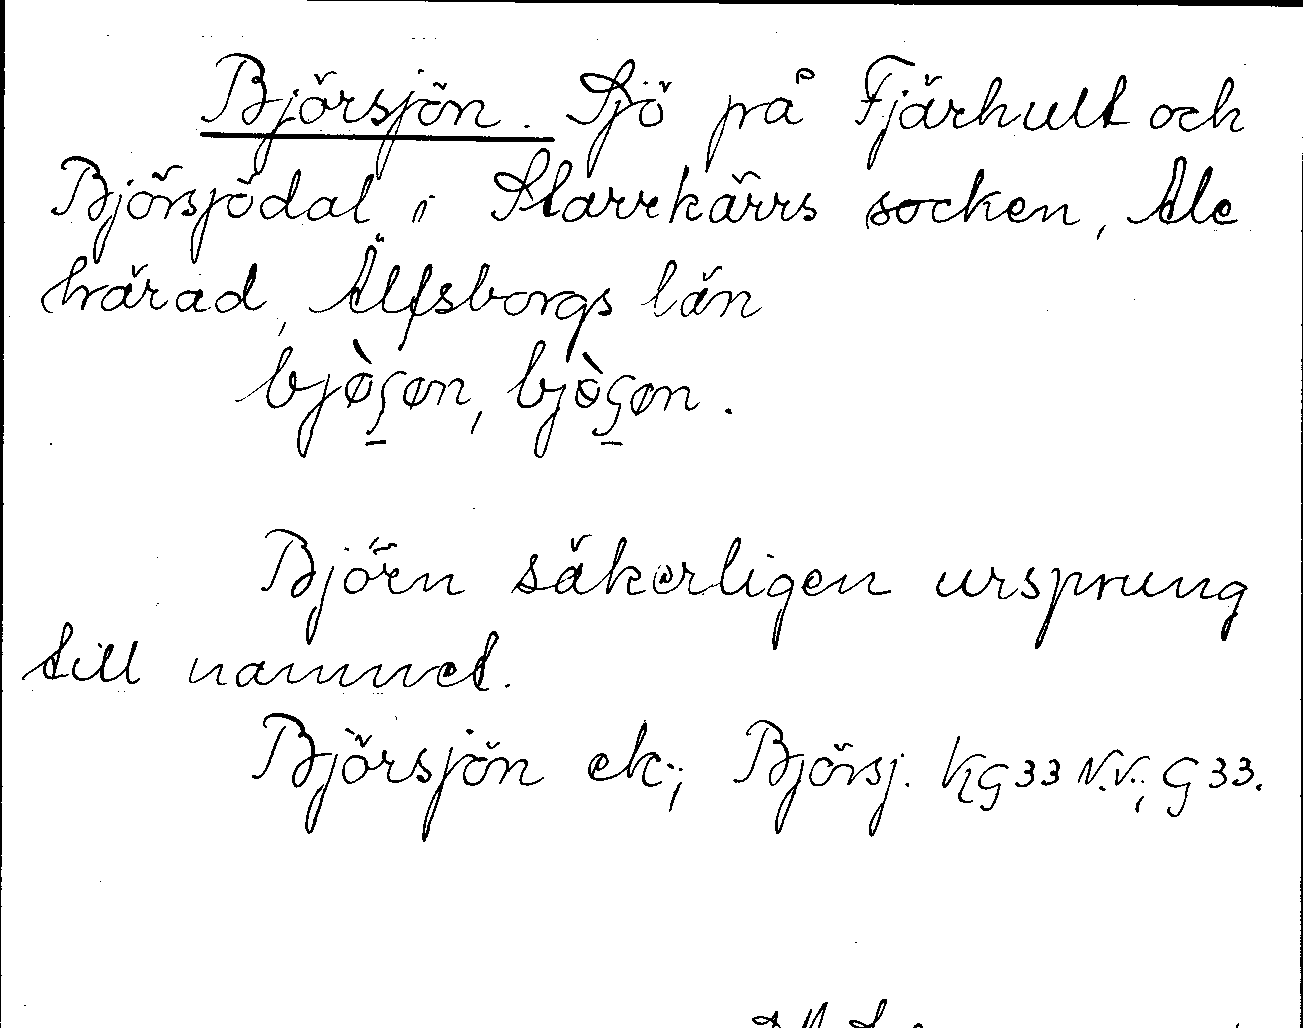 Björsjön. Sjö på Fjärhult och
Björsjödal i Starrkärrs socken, Ale
härad, Älfsborgs län
bjø̀ʂøn, bjɵ̀ʂøn.
Björn säkerligen ursprung
till namnet.
Björsjön ek.; Björsj. KG 33 N.V.; G 33.